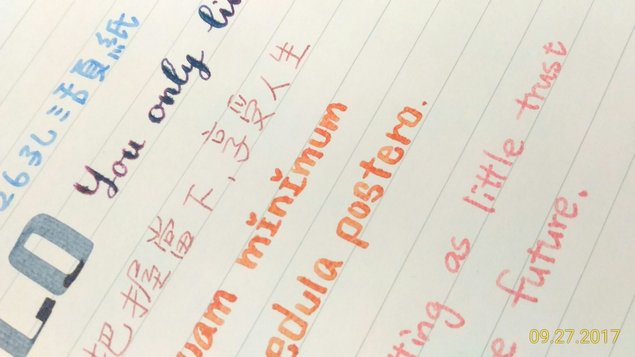 26孔活頁紙
LO
You only li
把握當下,享受人生
uam minimum
edula postero.
ting as little trust
e future.
09.27.2017